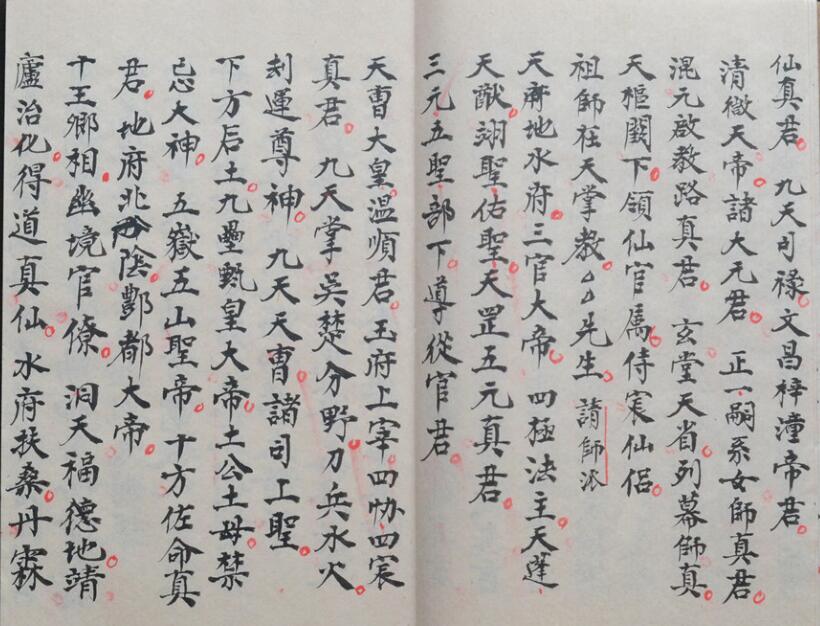 仙真君。九天司禄文昌梓潼帝君。
清微天帝。諸大元君。正一嗣系女師真君。
混元啟教路真君。玄堂天省列幕師真。
天樞闕下領仙官属侍宸仙侣。
祖師在天掌教厶厶先生。請師派
天府地水府。三官大帝。四極法主天蓬、
天猷翊聖佑聖。天罡五元真君。
三元五聖部下導從官君。
天曹大皇温順君。玉府上宰四协四宸
真君。九天掌吴楚分野。刀兵水火。
刦運尊神。九天天曹諸司上聖。
下方后土。九壘甄皇大帝。土公土母。禁
忌大神。五嶽五山聖帝。十方佐命真
君。地府北陰酆都大帝。
十王卿相。幽境官僚。洞天福德地。靖
廬治化。得道真仙。水府扶桑。丹霖